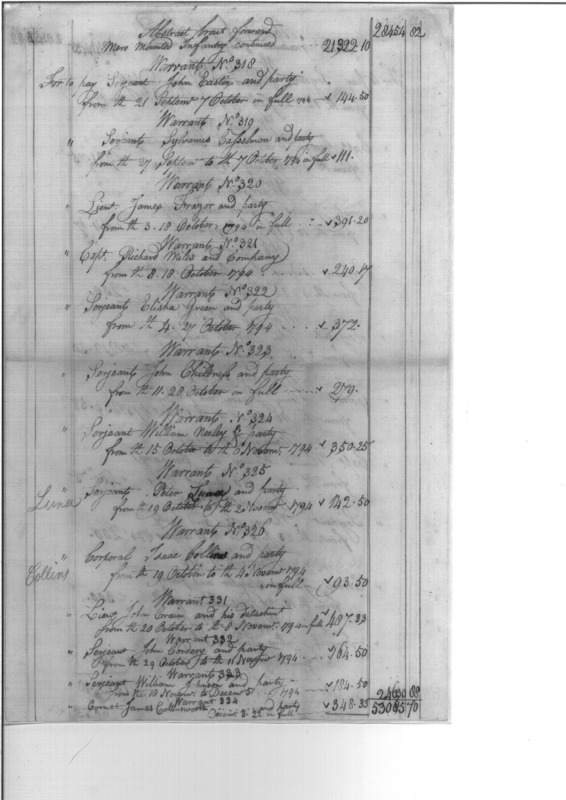 Abstract brat forward 28454 82
Mero Mounted Infantry continued 21322.10
Warrant No. 318
For to pay Serjeant John Easten and party
from the 21 Septemr 7 October in full 1794 144.50
Warrant No. 319
" Serjeant Sylvanus Casselman and party
from the 27 Septemr to the 7 October 1794 in full 111.
Warrant No. 320
" Lieut James Frazor and party
from the 3. 18 October 1794 in full 391.20
Warrant No. 321
" Capt. Richard and Company
from the 8. 18 October 1794 240.17
Warrant No. 322
" Serjeant Elisha Green and party
from the 4. 27 October 1794 372.
Warrant No. 323
" Serjeant John Childress and party
from the 11. 28 October in full 279.
Warrant No. 324
" Serjeant William Neeley & party
from the 15 October to the Novemr. 1794 350.25
Warrant No. 325
Serjeant Peter and party
from the 19 October to the 2 Novemr 1794 142.50
Warrant No. 326
" Corporal Isaac Collins and party
Collins from the 19 October to the 4 Novemr 1794
in full 93.50
Warrant 331
" Lieut John Crain and his detachmt
from the 20 October to the 8 Novemr. 1794 in full 487.33
Warrant 332
" Serjeant John Cordery and party
from the 29 October to the 11 Novemr 1794 164.50
Warrant 333
" Serjeant William Johnson and party
from the 18 Novemr. to Decemr 5 1794 184.50
Warrant 334
" Cornet James and party 348.33 24600 88
Decemr 3. 22 in full 53055 70